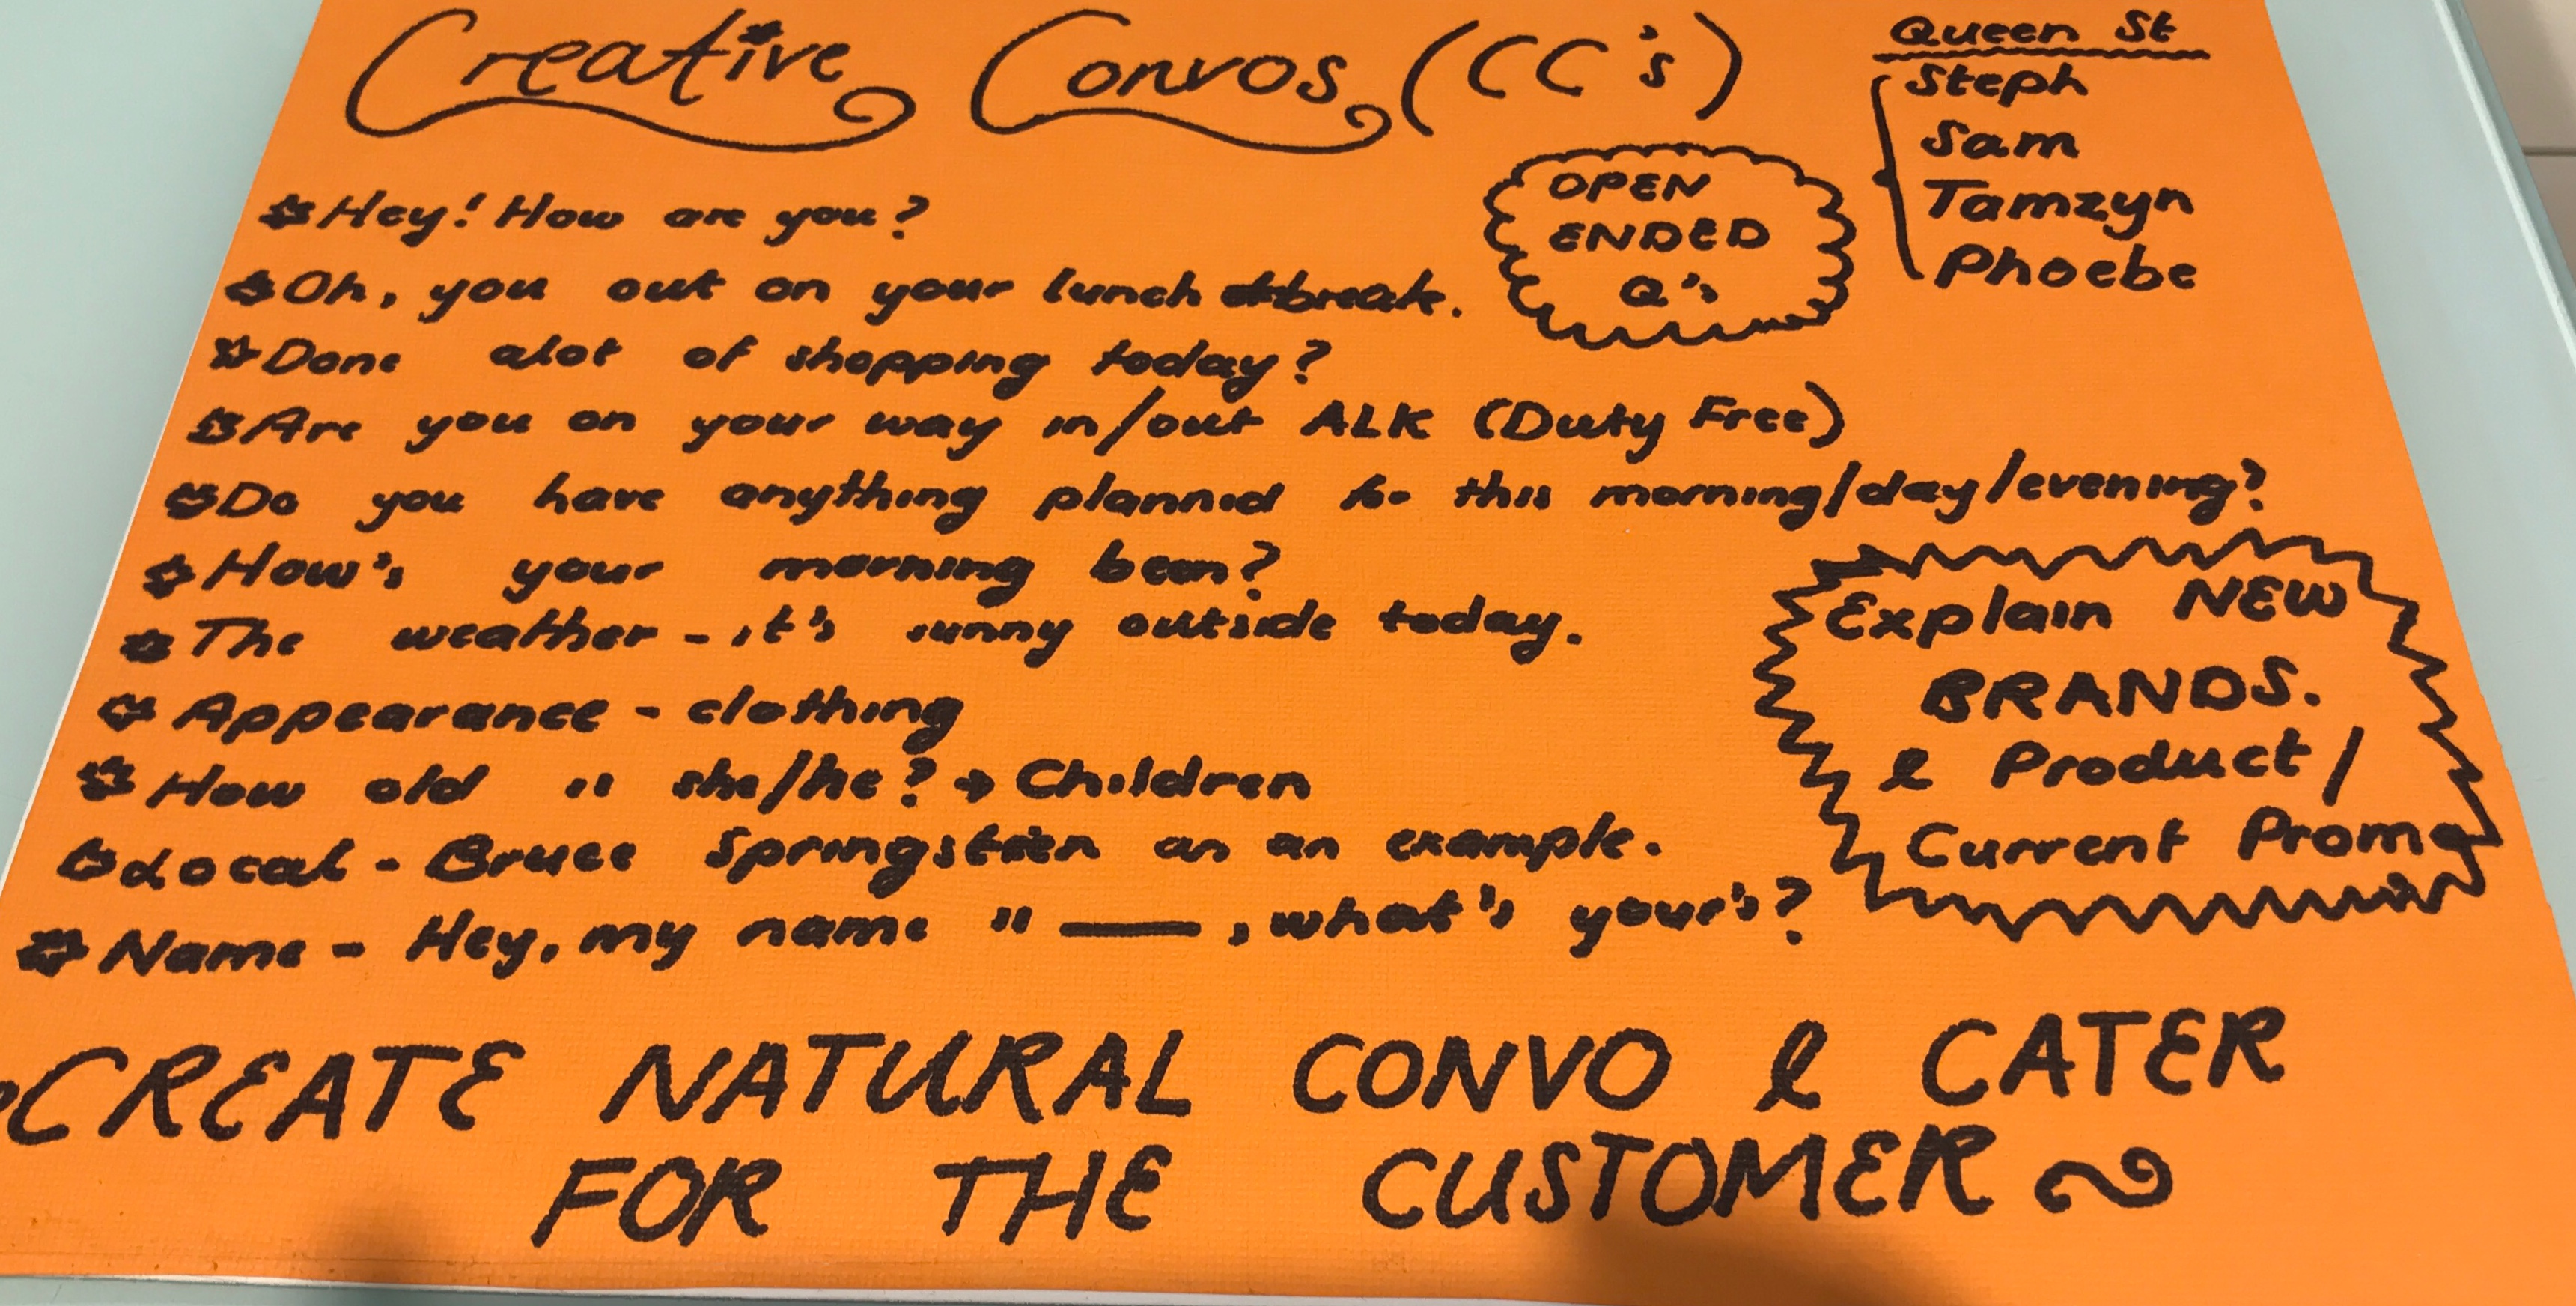 Creative Convos (CC's)
Queen St
Steph
Sam
Tamzyn
Phoebe
OPEN
ENDED
Q's
Hey! How are you?
Oh, you out on your lunch break.
Done alot of shopping today?
Are you on your way in/out ALK (Duty Free)
Do you have anything planned for this morning/day/evening?
How's your morning been?
The weather - it's sunny outside today.
Appearance - clothing
How old is she/he? → Children
Local - Bruce Springsteen as an example.
Name - Hey, my name is ___, what's your's?
Explain NEW
BRANDS.
& Product/
Current Promo
CREATE NATURAL CONVO & CATER
FOR THE CUSTOMER